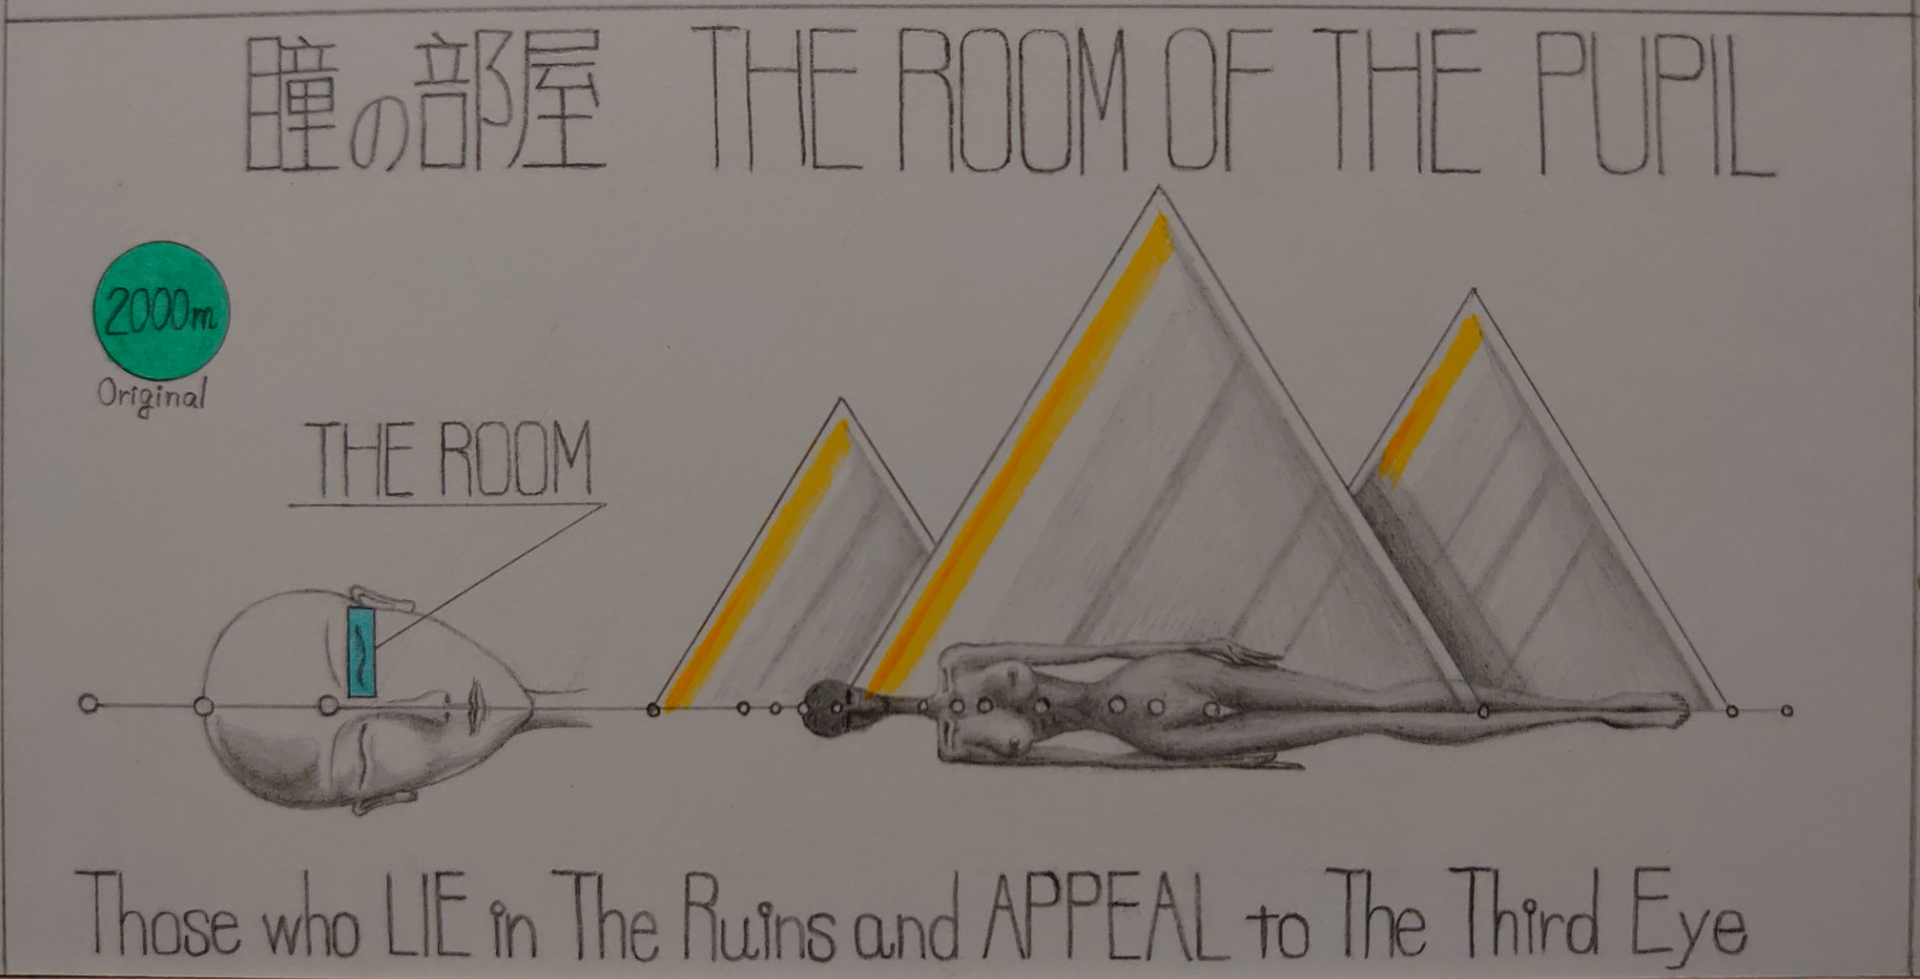 瞳の部屋 THE ROOM OF THE PUPIL
2000m
Original
THE ROOM
Those who LIE in The Ruins and APPEAL to The Third Eye